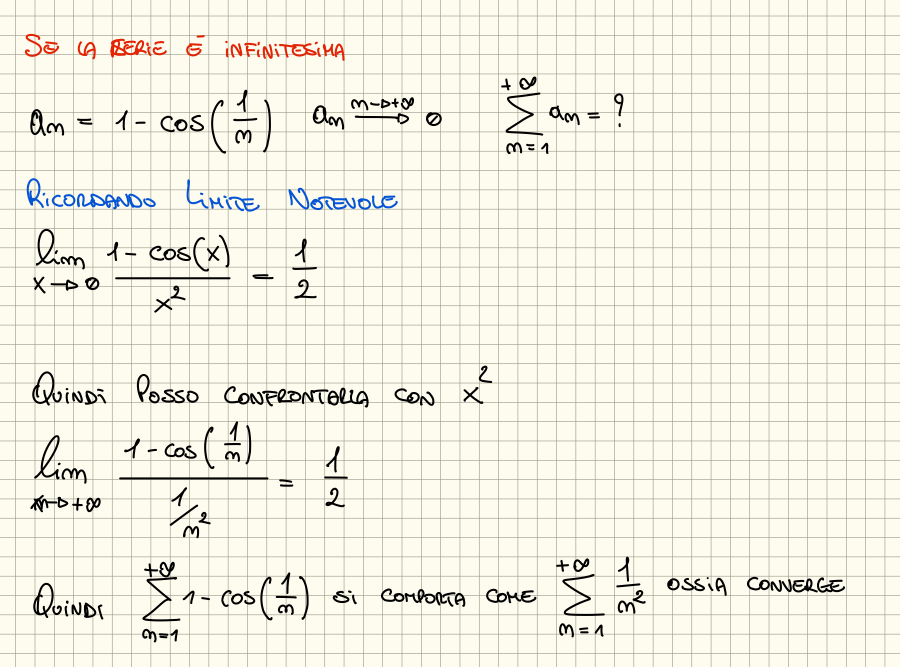 SE LA SERIE È INFINITESIMA
an = 1 - cos(1/n) an n→+∞ 0 +∞ ∑ n=1 an = ?
RICORDANDO LIMITE NOTEVOLE
lim x→0 1 - cos(x) / x² = 1/2
QUINDI POSSO CONFRONTARLA CON x²
lim n→+∞ 1 - cos(1/n) / 1/n² = 1/2
QUINDI +∞ ∑ n=1 1 - cos(1/n) SI COMPORTA COME +∞ ∑ n=1 1/n² OSSIA CONVERGE